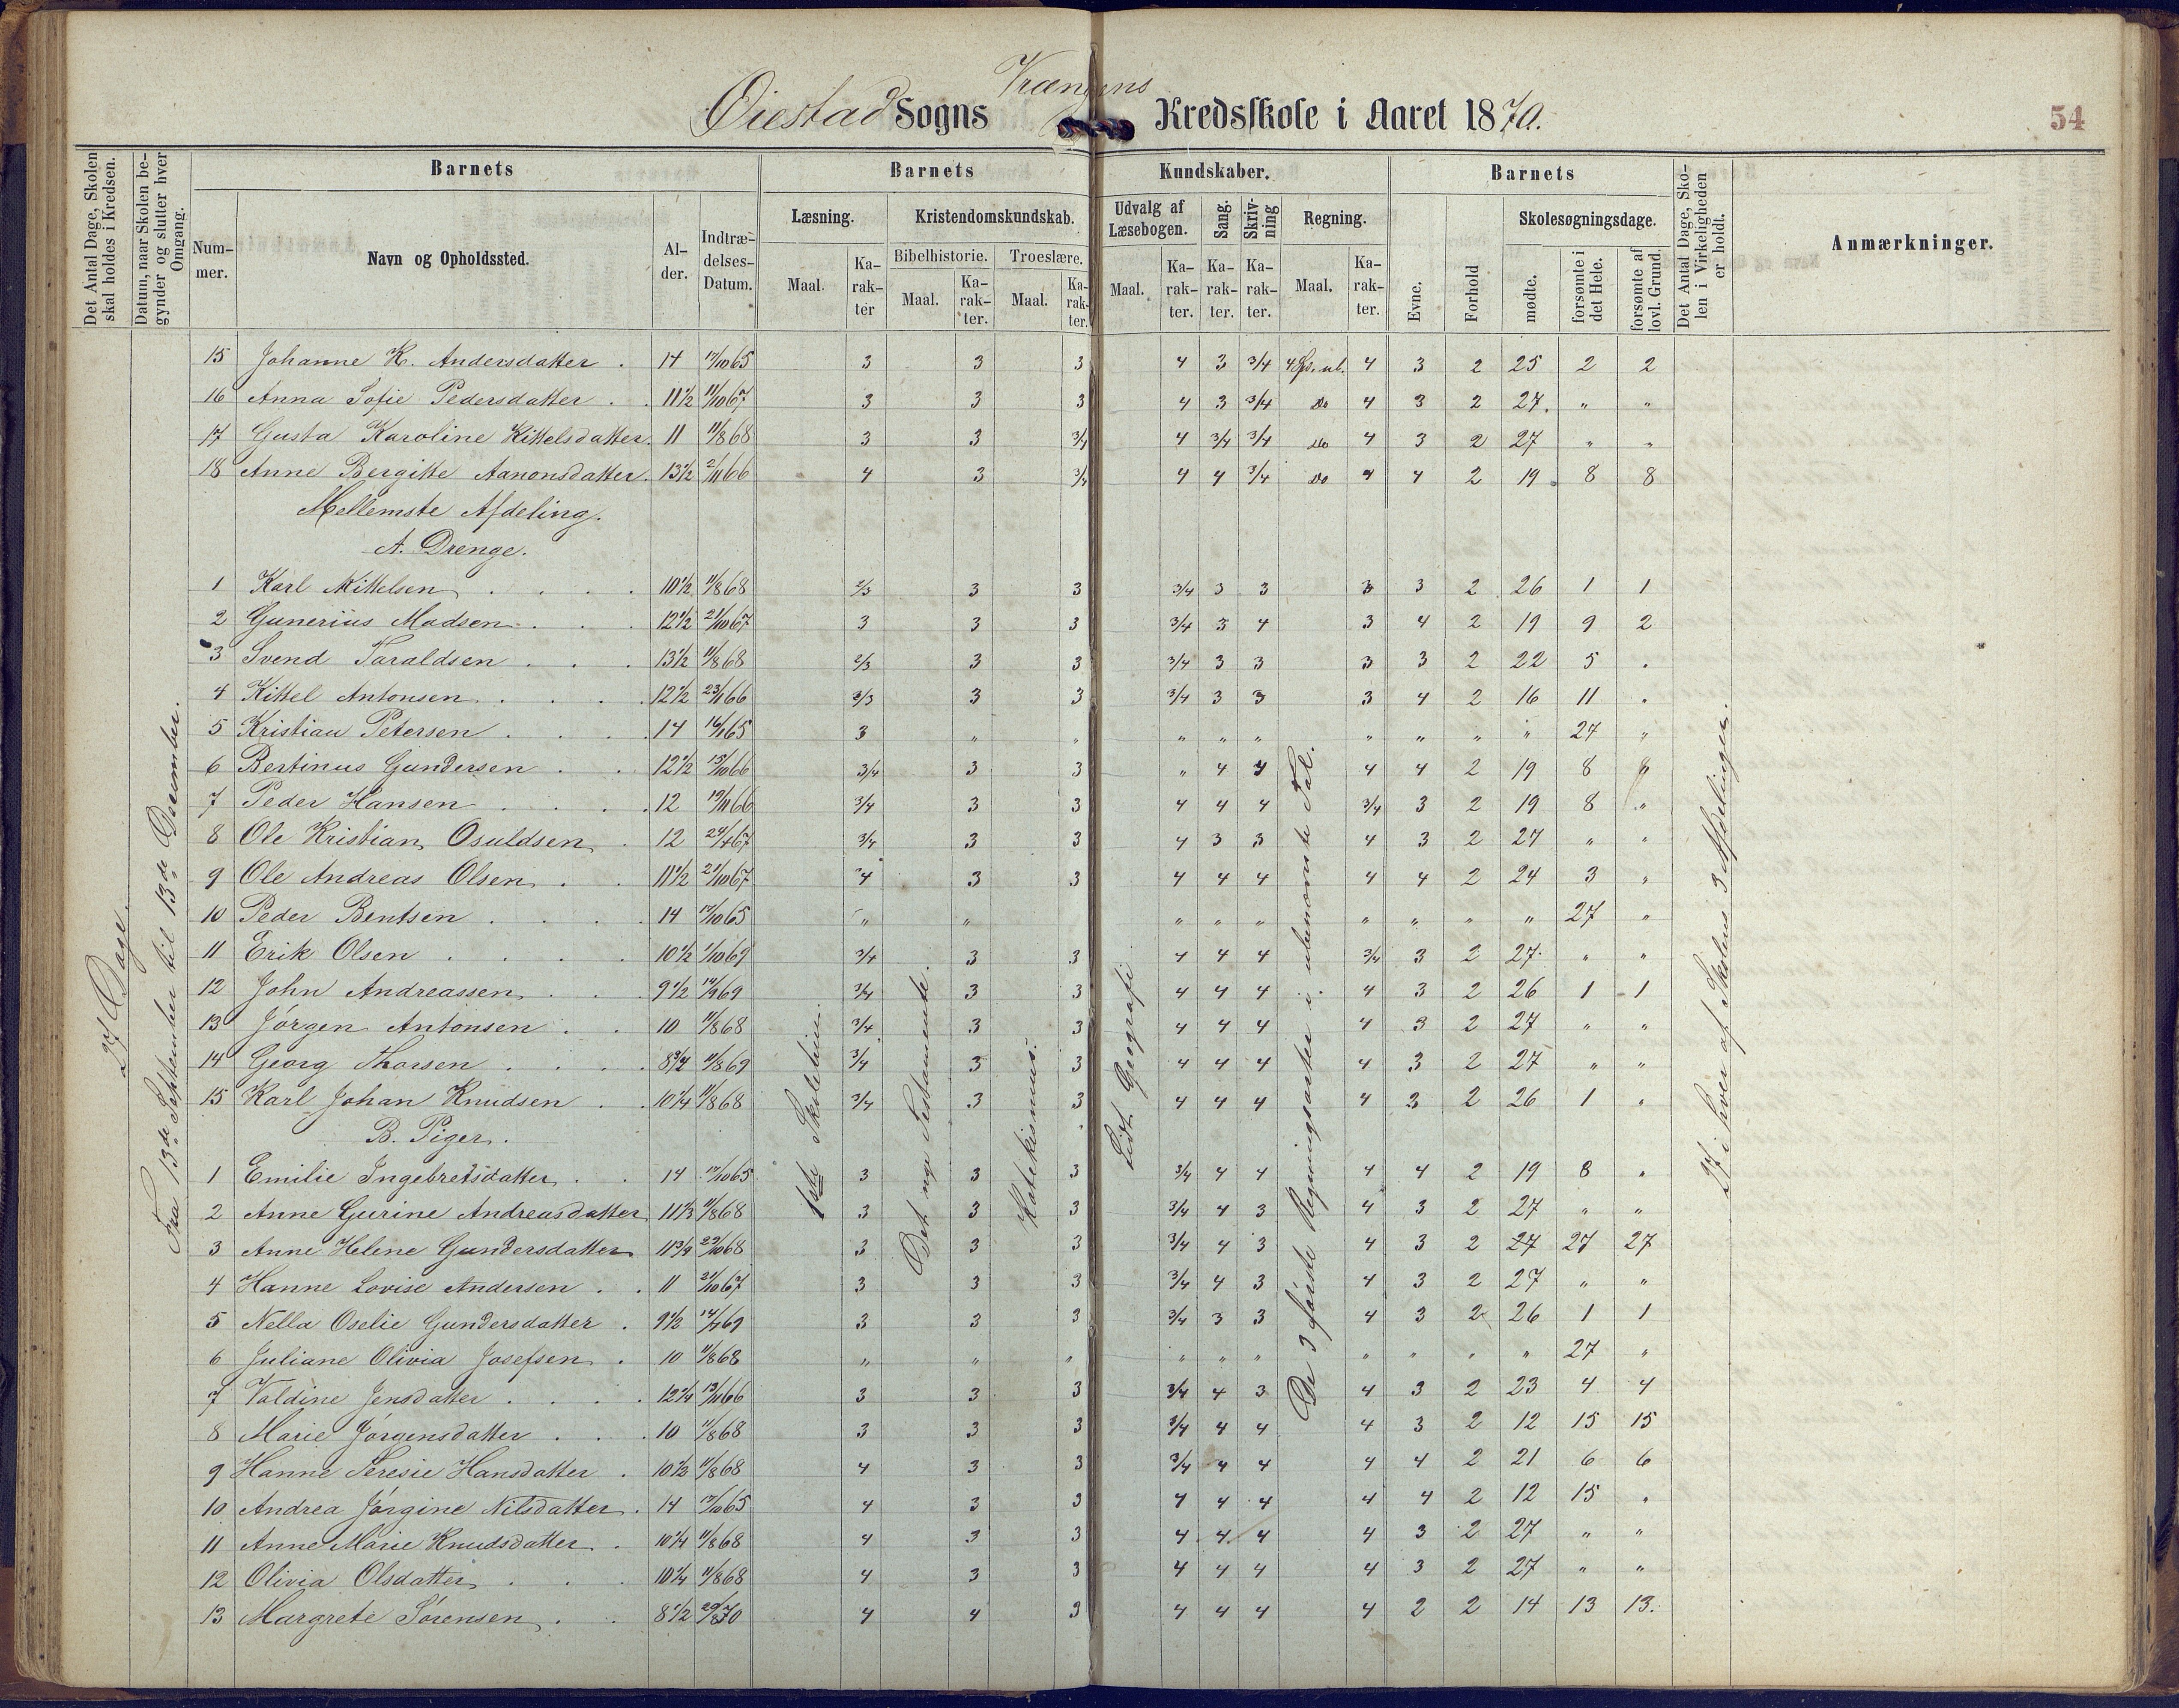 Øiestad Sogns Vrængens Kredsskole i Aaret 1870.
54
Det Antal Dage, Skolen skal holdes i Kredsen.
Datum, naar Skolen begynder og slutter hver Omgang.
Barnets
Nummer.
Navn og Opholdssted.
Alder.
Indtrædelses-Datum.
Barnets Kundskaber.
Læsning.
Maal.
Karakter
Kristendomskundskab.
Bibelhistorie.
Maal.
Karakter.
Troeslære.
Maal.
Karakter.
Udvalg af Læsebogen.
Maal.
Karakter.
Sang.
Karakter.
Skrivning
Karakter.
Regning.
Maal.
Karakter.
Barnets
Evne.
Forhold
Skolesøgningsdage.
mødte.
forsømte i det Hele.
forsømte af lovl. Grund.
Det Antal Dage, Skolen i Virkeligheden er holdt.
Anmærkninger.
27 Dage.
Fra 13de September til 13de December.
1ste Skoletrin.
Det nye Testamente.
Katekismus.
Lidt Geografi
De 3 første Regningsarter i ubenævnte Tal.
27 i hver af Skolens 3 Afdelinger.
15 Johanne K. Andersdatter . 14 17/10 65 3 3 3 4 3 3/4 4 3 2 25 2 2
16 Anna Sofie Pedersdatter . . 11 1/2 11/10 67 3 3 3 4 3 3/4 Do 4 3 2 27. " "
17 Gusta Karoline Kittelsdatter. 11 11/8 68 3 3 3/4 4 3/4 3/4 Do 4 3 2 27 " "
18 Anne Bergitte Aanonsdatter. 13 1/2 2/11 66 4 3 3/4 4 4 3/4 Do 4 4 2 19. 8 8
Mellemste Afdeling.
A. Drenge.
1 Karl Kittelsen . . . . 10 1/2 11/8 68 2/3 3 3 3/4 3 3 3 3 2 26 1 1
2 Gunerius Madsen . . . 12 1/2 21/10 67 3 3 3 3/4 3 4 3 4 2 19 9 2
3 Svend Taraldsen . . . 13 1/2 11/8 68 2/3 3 3 3/4 3 3 3 3 2 22 5 "
4 Kittel Antonsen . . . . 12 1/2 23/1 66 2/3 3 3 3/4 3 3 3 4 2 16 11 "
5 Kristian Petersen . . . . 14 16/1 65 3 " " " " " " " " " 27 "
6 Bertinus Gundersen . . 12 1/2 15/10 66 3/4 3 3 " 4 4 4 4 2 19 8 8
7 Peder Hansen . . . . 12 19/11 66 3/4 3 3 4 4 4 3/4 3 2 19 8 "
8 Ole Kristian Osuldsen . 12 24/4 67 3/4 3 3 4 3 3 4 3 2 27 " "
9 Ole Andreas Olsen . . 11 1/2 21/10 67 4 3 3 4 4 4 4 4 2 24 3 "
10 Peder Bentsen . . . . 14 17/10 65 " " " " " " " " " 27 "
11 Erik Olsen . . . . . 10 1/2 1/10 69 3/4 3 3 4 4 4 3/4 3 2 27. " "
12 John Andreassen . . . 9 1/2 14/9 69 3/4 3 3 4 4 4 4 3 2 26 1 1
13 Jørgen Antonsen . . 10 11/8 68 3/4 3 3 4 4 4 4 3 2 27 " "
14 Georg Thorsen . . . . 8 3/4 11/8 69 3/4 3 3 4 4 4 4 3 2 27 " "
15 Karl Johan Knudsen . . 10 1/4 11/8 68 3/4 3 3 4 4 4 4 3 2 26 1 "
B. Piger.
1 Emilie Ingebretsdatter . . 14 17/10 65 3 3 3 3/4 4 4 4 4 2 19 8 "
2 Anne Gurine Andreasdatter 11 1/3 11/8 68 3 3 3 3/4 4 3 4 3 2 27 " "
3 Anne Helene Gundersdatter 11 3/4 29/10 68 3 3 3 3/4 4 3 4 3 2 27 27 27
4 Hanne Lovise Andersen . . 11 21/10 67 3 3 3 3/4 4 3 4 3 2 27 " "
5 Nella Oselie Gundersdatter . 9 1/2 14/9 69 3 3 3 3/4 3 3 4 3 2 26 1 1
6 Juliane Olivia Josefsen . 10 11/8 68 " " " " " " " " " " 27 "
7 Valdine Jensdatter . . . . 12 1/4 13/11 66 3 3 3 3/4 4 3 4 3 2 23 4 4
8 Marie Jørgensdatter . . . 10 11/8 68 3 3 3 3/4 4 4 4 3 2 12 15 15
9 Hanne Teresie Hansdatter . 10 1/3 11/8 68 4 3 3 3/4 4 4 4 4 2 21 6 6
10 Andrea Jørgine Nilsdatter . 14 17/10 65 4 3 3 4 4 4 4 4 2 12 15 "
11 Anne Marie Knudsdatter . 10 1/4 11/8 68 4 3 3 4 4 4 4 3 2 27 " "
12 Olivia Olsdatter . . . 10 1/4 11/8 68 4 3 3 4 4 4 4 3 2 27 " "
13 Margrete Sørensen . . 8 1/2 29/8 70 4 4 3 4 4 4 4 2 2 14 13 13.